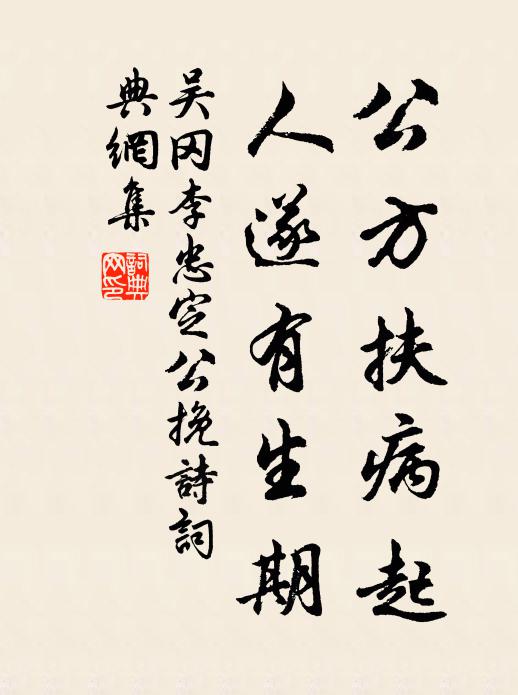 公方扶病起
人遂有生期
吴冈李忠定公挽詩詞
典網集
詞典网印